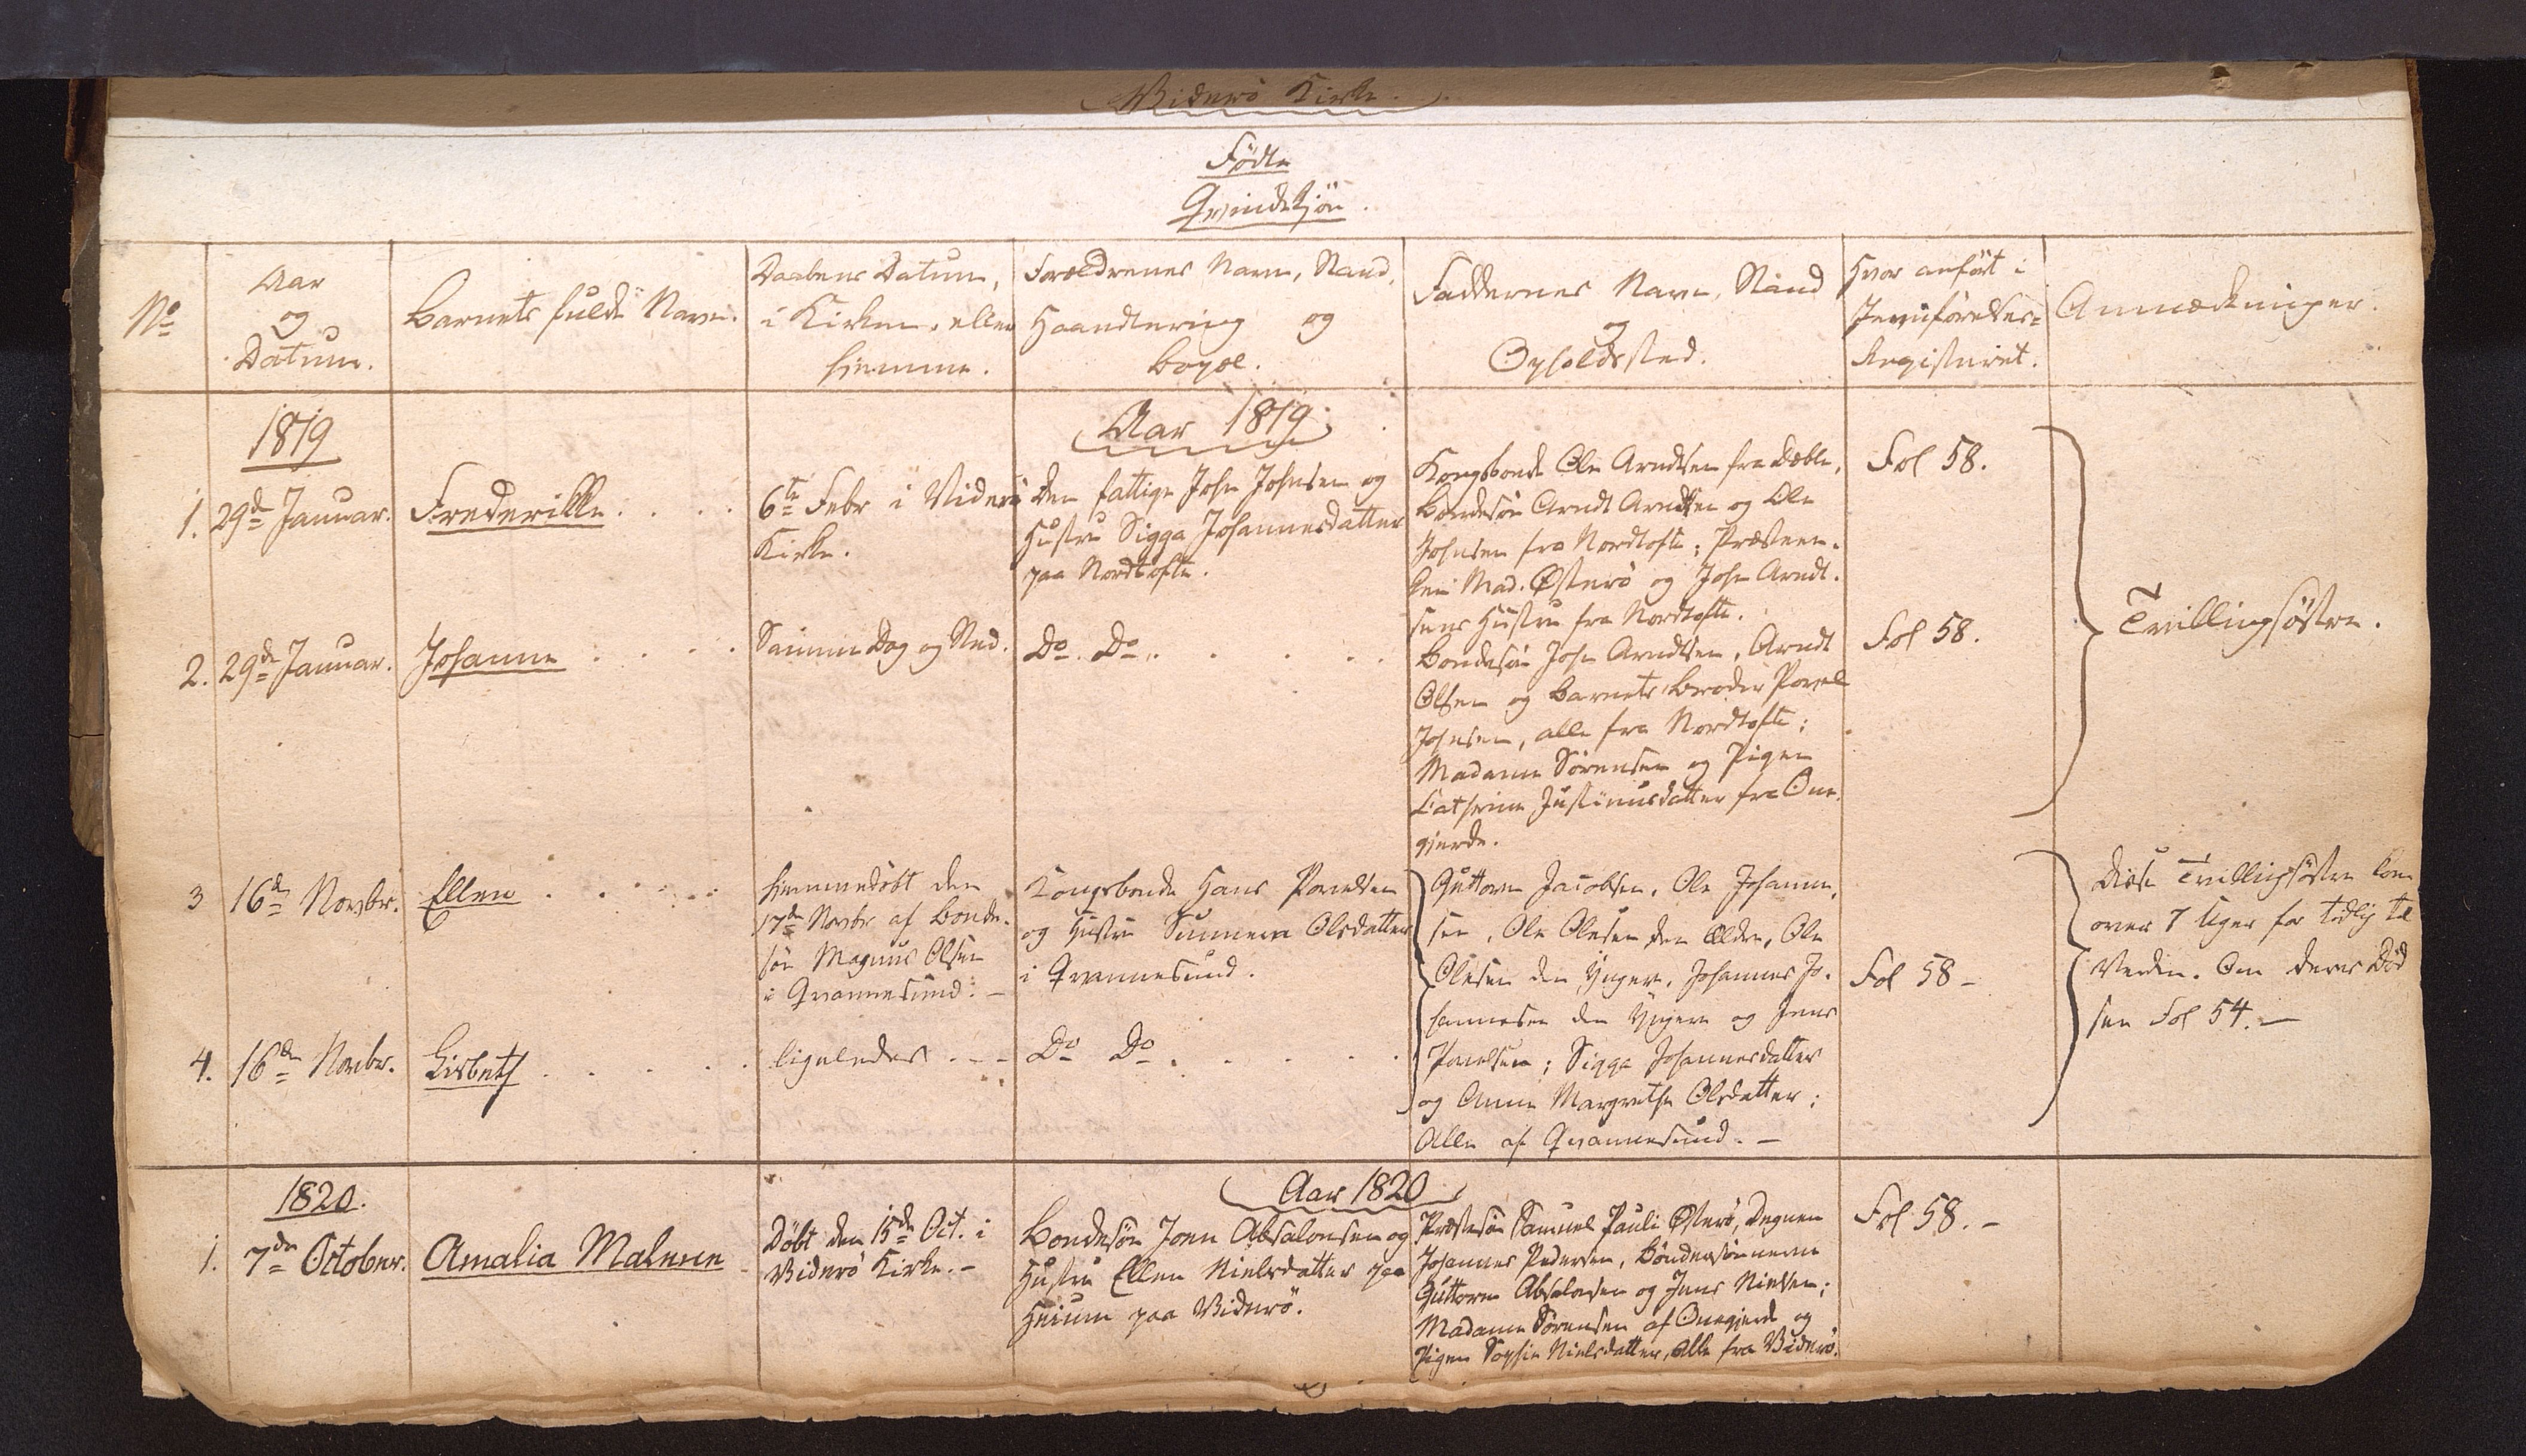 Viderö Kirke.
Födte
Qvindekjön.
No
Aar
og
Datum.
Barnets fulde Navn.
Daabens Datum,
i Kirken, eller
hiemme.
Forældrenes Navn, Stand,
Haandtering og
Bopæl.
Faddernes Navn, Stand
og
Opholdssted.
Hvor anfört i
Jevnförelses-
Registeret.
Anmærkninger.
1819
Aar 1819.
1.
29de Januar.
Frederikke
6te Febr i Viderö
Kirke.
Den fattige John Johnsen og
Hustru Sigga Johannesdatter
paa Nordtofte.
Kongsbonde Ole Arndtsen fra Dæble,
Bondesön Arndt Arndtsen og Ole
Johnsen fra Nordtofte; Præsteen-
ken Mad. Østerö og John Arndt-
sens Hustru fra Nordtofte.
Fol 58.
Tvillingsöstre.
2.
29de Januar.
Johanne
Samme Dag og Sted.
Do Do
Bondesön John Arndtsen, Arndt
Olsen og Barnets Broder Povel
Johnsen, alle fra Nordtofte;
Madame Sörensen og Pigen
Cathrine Justinusdatter fra One-
gjerde.
Fol 58.
3
16de Novbr.
Ellen
hiemmedöbt den
17de Novbr af Bonde-
sön Magnus Olsen
i Qvannesund. -
Kongsbonde Hans Povelsen
og Hustru Sunneva Olsdatter
i Qvannesund.
Guttorm Jacobsen, Ole Johanne-
sen, Ole Olesen den Ældre, Ole
Olesen den Yngere, Johannes Jo-
hannesen den Yngere og Jens
Povelsen; Sigga Johannesdatter
og Anne Margrethe Olsdatter;
Alle af Qvannesund. -
Fol 58 -
Disse Tvillingsöstre kom
over 7 Uger for tidlig til
Verden. Om deres Död
see Fol 54. -
4.
16de Novbr.
Lisbeth
ligeledes
Do Do
1820.
Aar 1820
1.
7de October.
Amalia Malene
Döbt den 15de Oct. i
Viderö Kirke. -
Bondesön Joen Absalonsen og
Hustru Ellen Nielsdatter paa
Heium paa Viderö.
Præstesön Samuel Pauli Østerö, Degnen
Johannes Pedersen, Bondesönnerne
Guttorm Absalonsen og Jens Nielsen;
Madame Sörensen af Onegjerde og
Pigen Sophie Nielsdatter, alle fra Viderö.
Fol 58. -